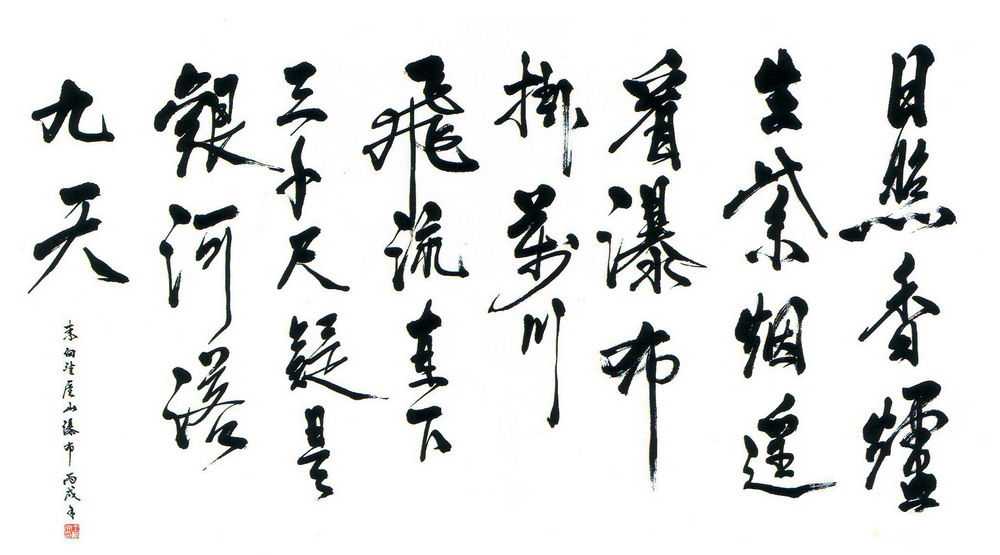 日照香爐
生紫烟遥
看瀑布
掛前川
飛流直下
三千尺疑是
銀河落
九天
李白望廬山瀑布 丙戌年